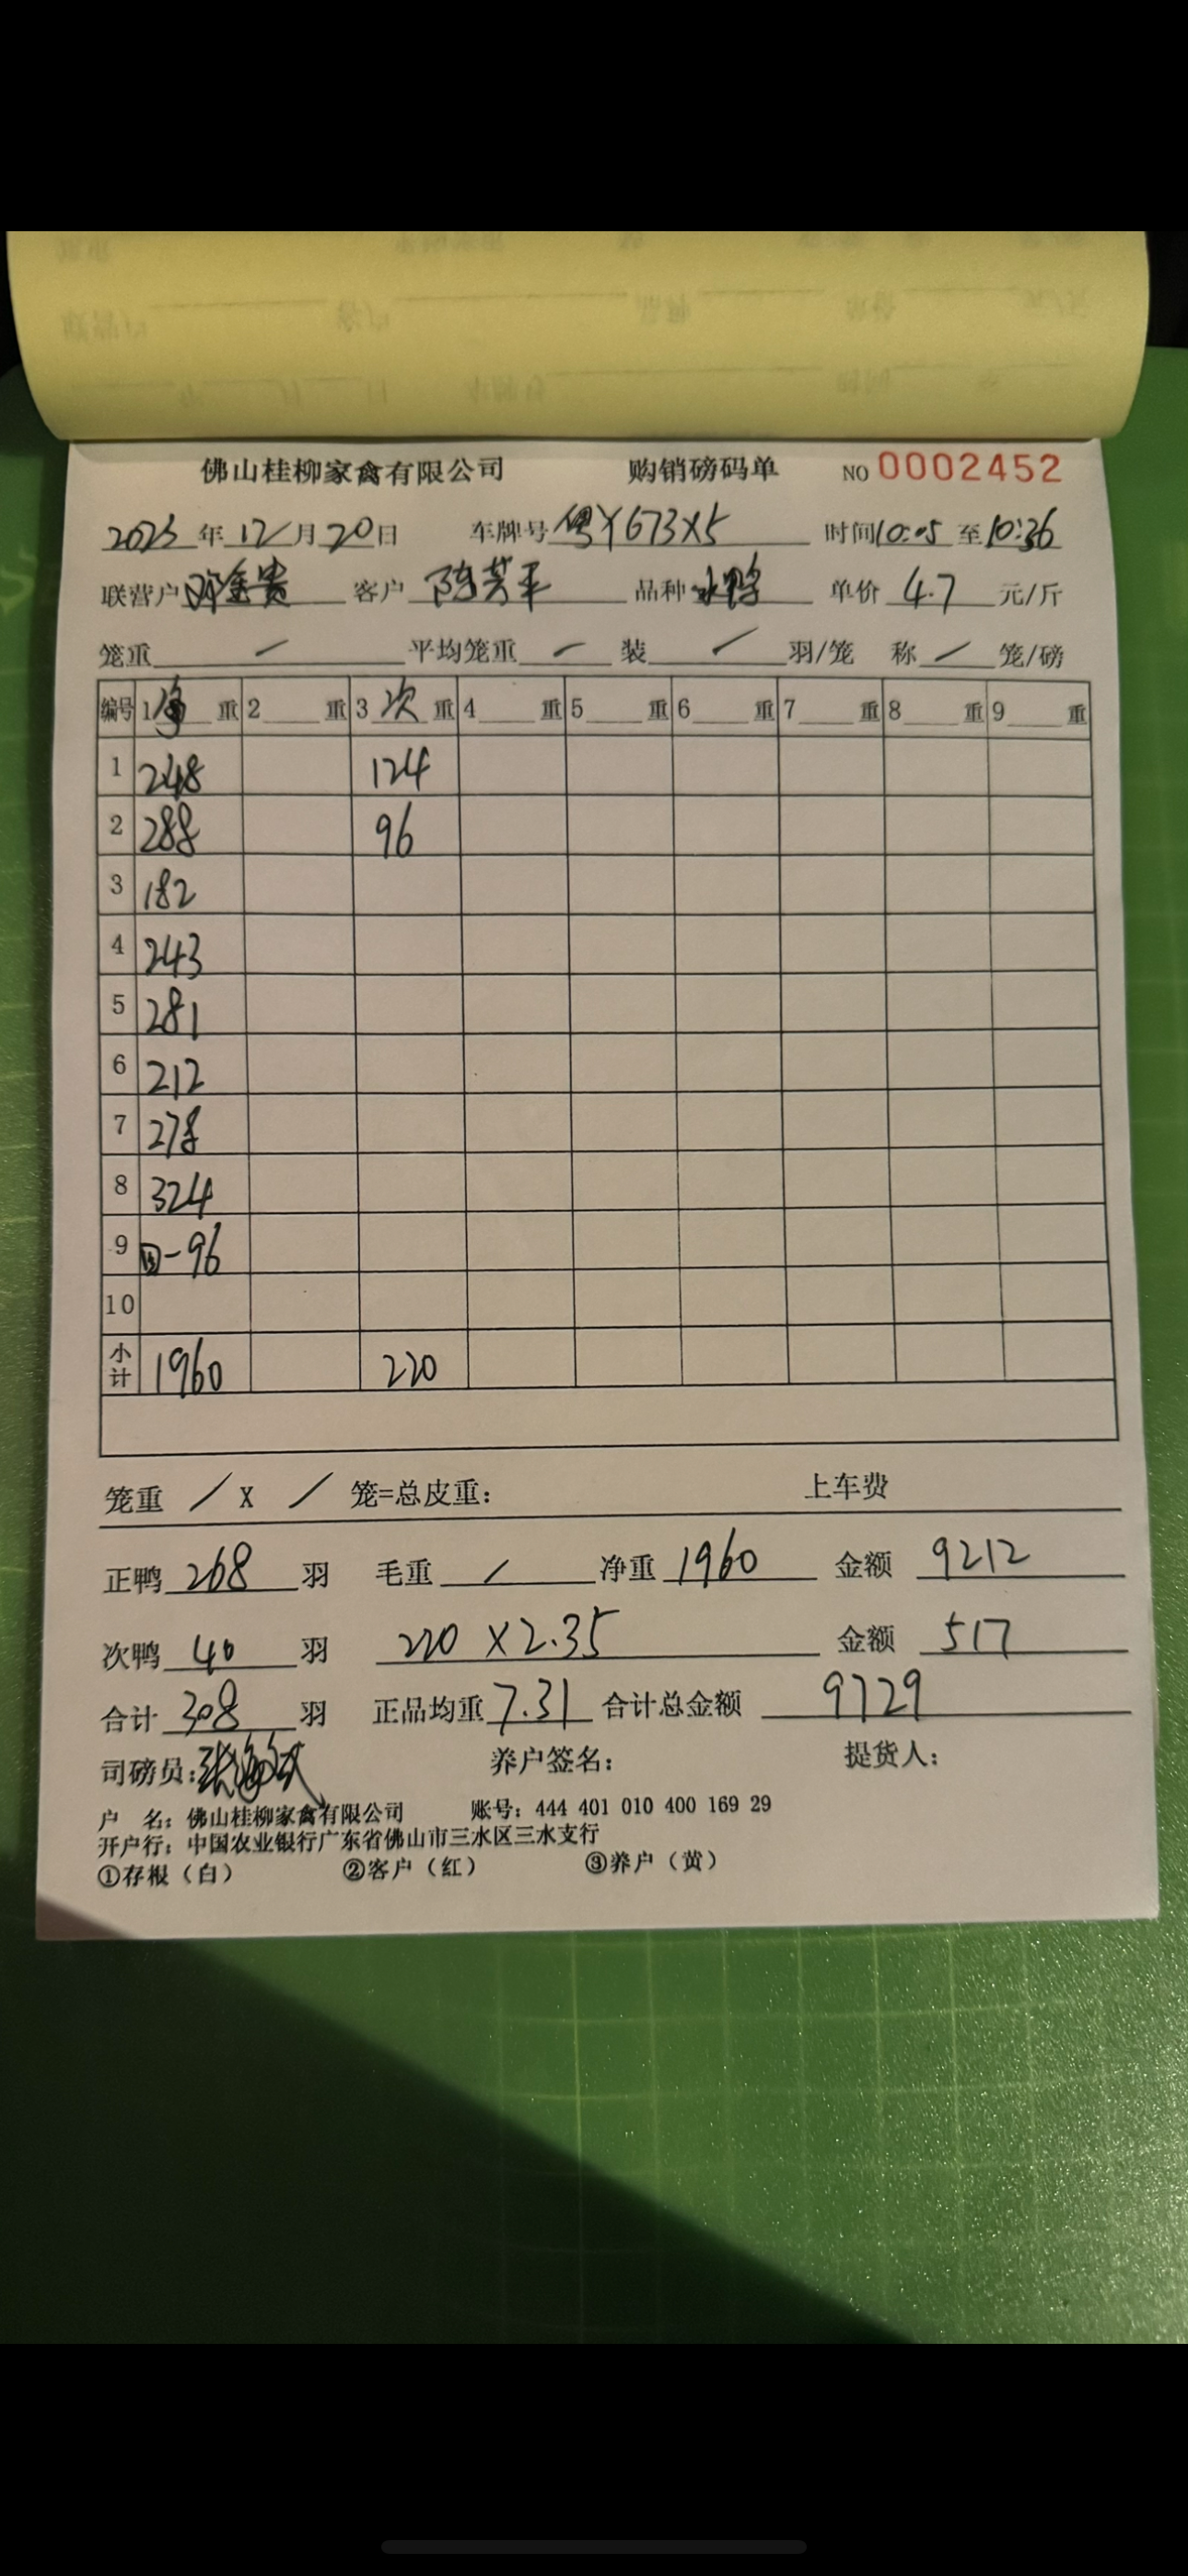 佛山桂柳家禽有限公司 购销磅码单 NO 0002452
2023年12月20日 车牌号 粤Y673X5 时间10:05至10:36
联营户 邓金贵 客户 陈芳平 品种 水鸭 单价 4.7 元/斤
笼重 / 平均笼重 / 装 / 羽/笼 称 / 笼/磅
编号 1 净 重 2 重 3 次 重 4 重 5 重 6 重 7 重 8 重 9 重
1 248 124
2 288 96
3 182
4 243
5 281
6 212
7 278
8 324
9 回-96
10
小计 1960 220
笼重 / X / 笼=总皮重: 上车费
正鸭 268 羽 毛重 / 净重 1960 金额 9212
次鸭 40 羽 220 X 2.35 金额 517
合计 308 羽 正品均重 7.31 合计总金额 9729
司磅员: 养户签名: 提货人:
户 名: 佛山桂柳家禽有限公司 账号: 444 401 010 400 169 29
开户行: 中国农业银行广东省佛山市三水区三水支行
①存根（白） ②客户（红） ③养户（黄）